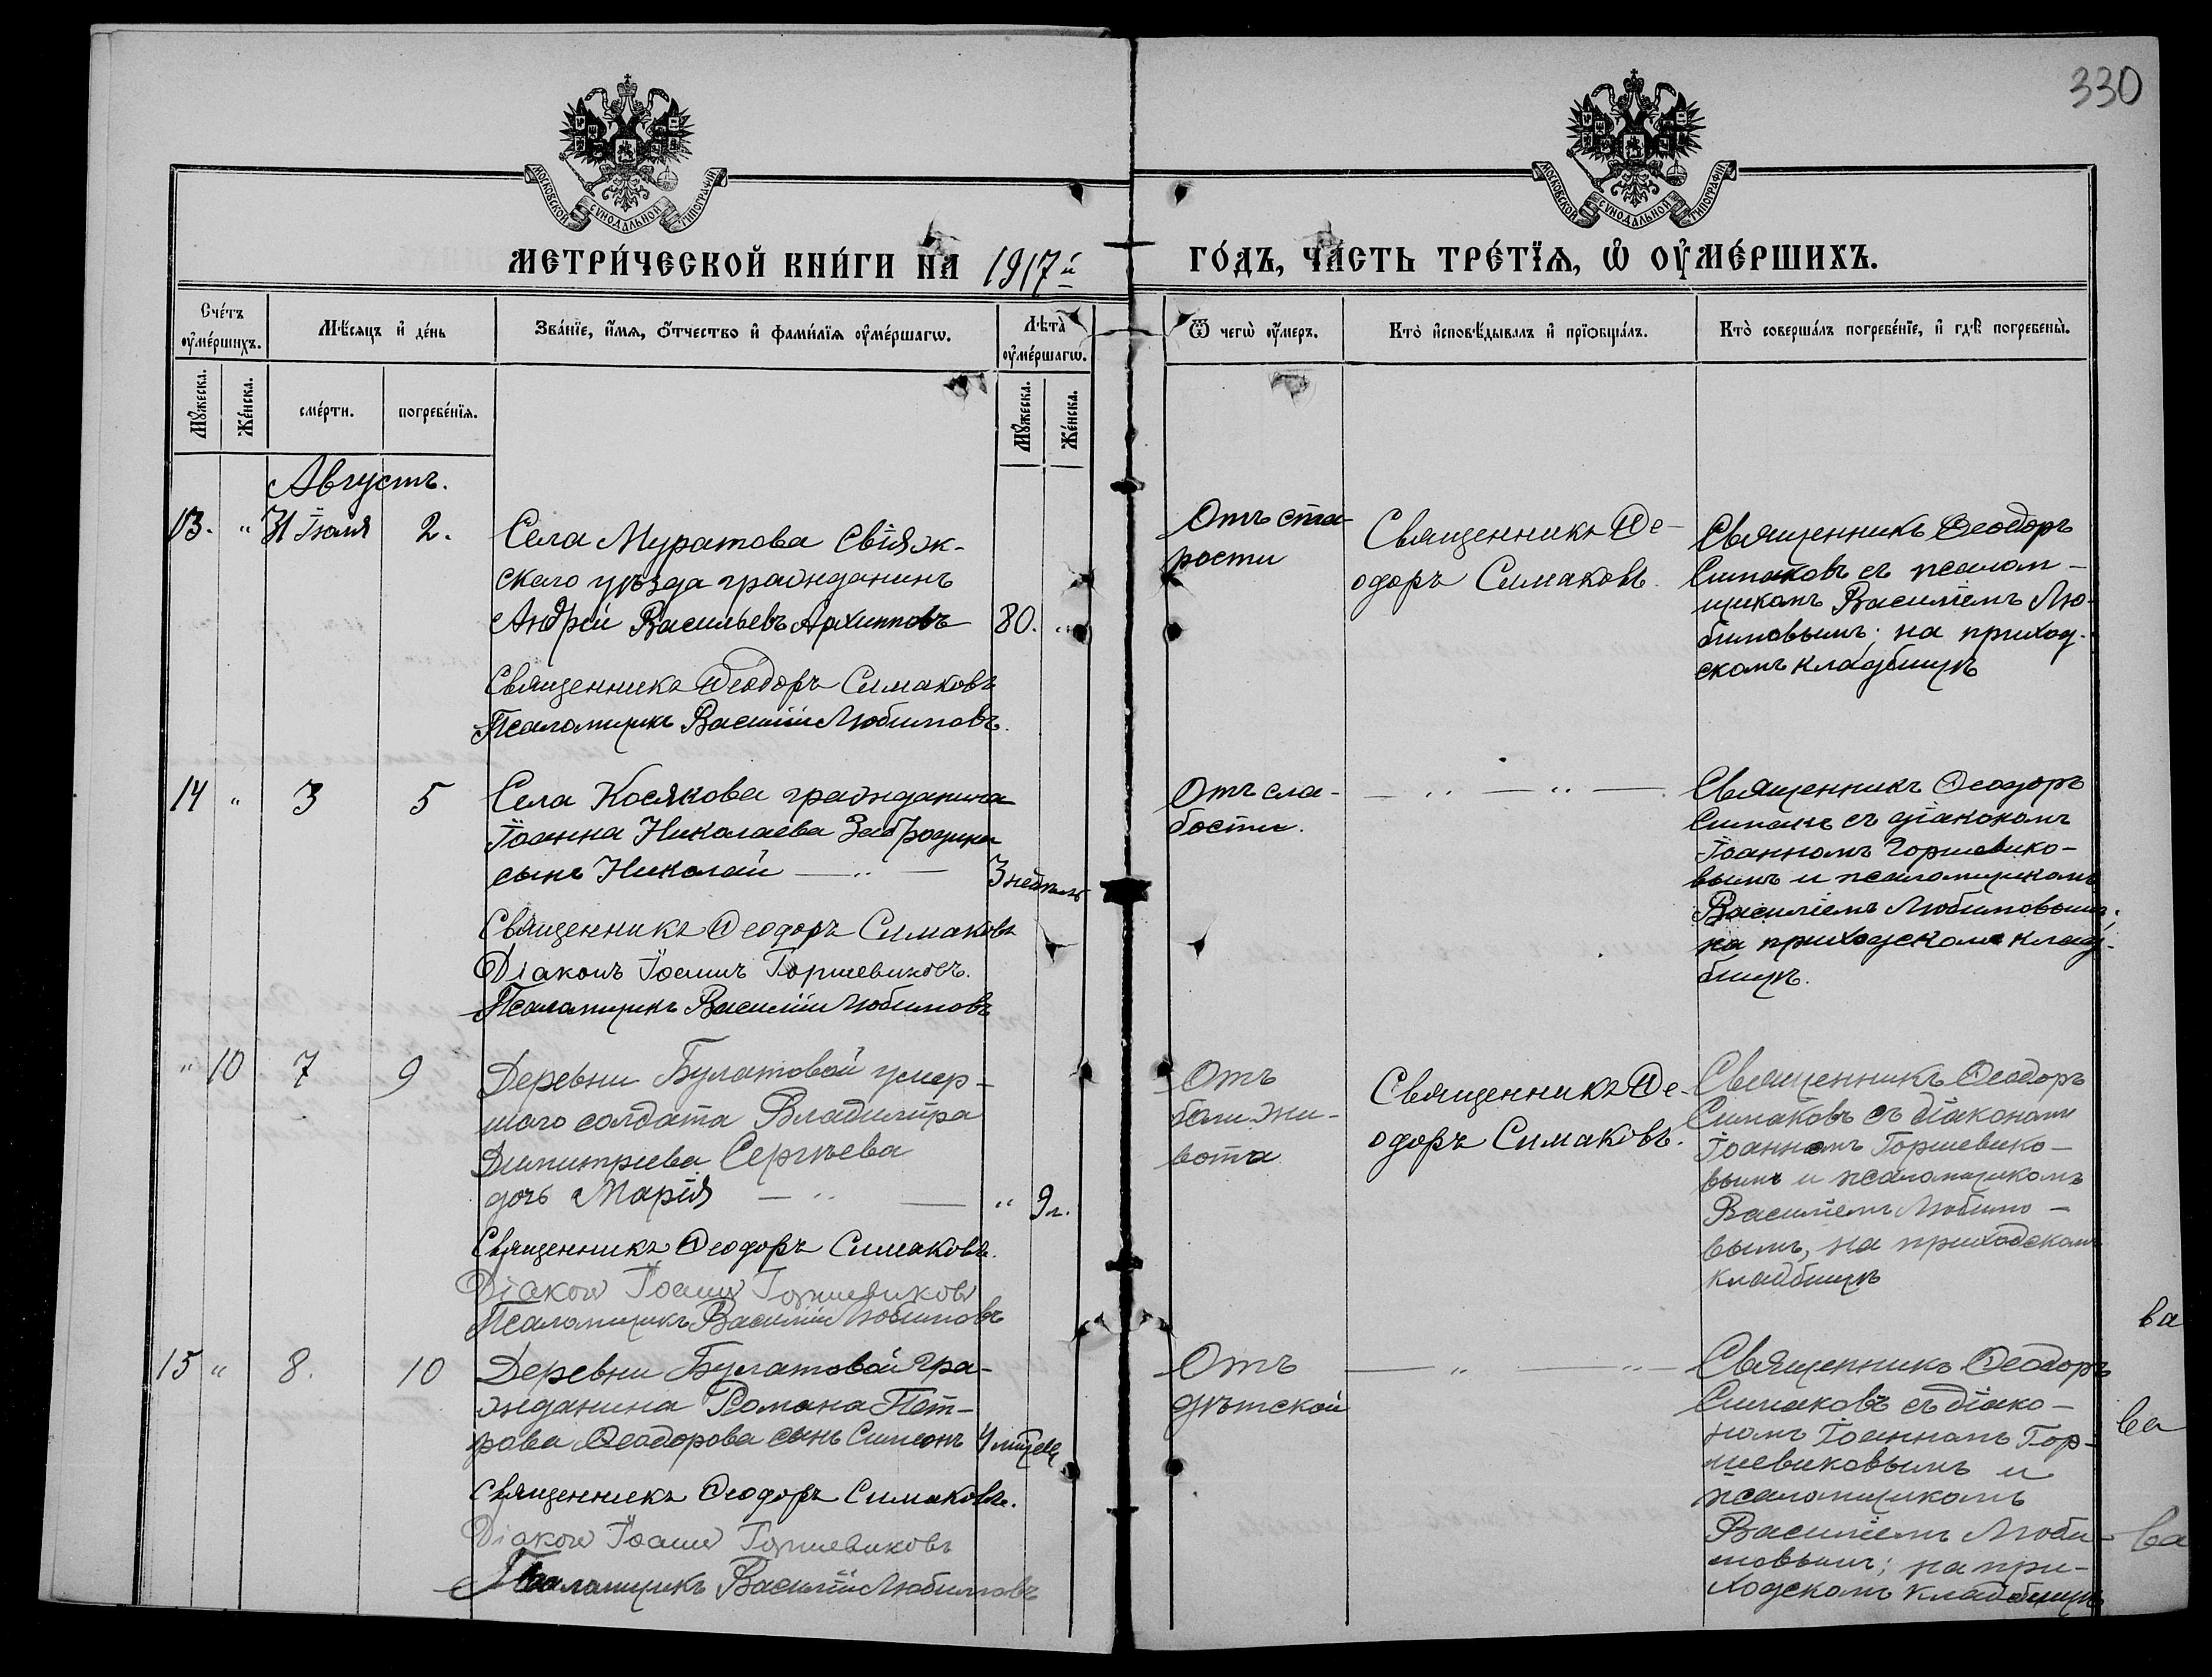 330
МОСКОВСКОЙ СѴНОДАЛЬНОЙ ТИПОГРАФІИ
МОСКОВСКОЙ СѴНОДАЛЬНОЙ ТИПОГРАФІИ
МЕТРИ́ЧЕСКОЙ КНИ́ГИ НА 1917й ГО́ДЪ, ЧА́СТЬ ТРЕ́ТЇѦ, Ѡ҆ ОУ҆МЕ́РШИХЪ.
Сче́тъ оу҆ме́ршихъ.
Мѣ́сяцъ и҆ де́нь
Зва́нїе, и҆́мя, ѻ҆́тчество и҆ фами́лїя оу҆ме́ршагѡ.
Лѣта̀ оу҆ме́ршагѡ.
Ѿ чегѡ̀ оу҆́меръ.
Кто̀ и҆сповѣ́дывалъ и҆ прїѡбща́лъ.
Кто̀ соверша́лъ погребе́нїе, и҆ гдѣ̀ погребены̀.
Мꙋ́жеска.
Же́нска.
сме́рти.
погребе́нїя.
Мꙋ́жеска.
Же́нска.
Августъ.
13. " 31 Іюля 2.
Села Муратова Свіяж-
скаго уѣзда гражданинъ
Андрей Васильевъ Архиповъ 80. "
Священникъ Ѳеодоръ Симаковъ
Псаломщикъ Василій Любимовъ.
Отъ ста-
рости
Священникъ Ѳе-
одоръ Симаковъ.
Священникъ Ѳеодоръ
Симаковъ съ псалом-
щикомъ Василіемъ Лю-
бимовымъ; на приход-
скомъ кладбищѣ
14 " 3 5
Села Косякова гражданина
Іоанна Николаева
сынъ Николай — " — 3 недѣль
Священникъ Ѳеодоръ Симаковъ
Діаконъ Іоаннъ Горшевиковъ.
Псаломщикъ Василій Любимовъ
Отъ сла-
бости.
— " — " —
Священникъ Ѳеодоръ
Симаковъ съ діакономъ
Іоанномъ Горшевико-
вымъ и псаломщикомъ
Василіемъ Любимовымъ;
на приходскомъ клад-
бищѣ.
" 10 7 9
Деревни Булатовой умер-
шаго солдата Владиміра
Димитріева Сергѣева
дочь Марія — " — " 9 л.
Священникъ Ѳеодоръ Симаковъ.
Діаконъ Іоаннъ Горшевиковъ
Псаломщикъ Василій Любимовъ
Отъ
боли жи-
вота
Священникъ Ѳе-
одоръ Симаковъ.
Священникъ Ѳеодоръ
Симаковъ съ діакономъ
Іоанномъ Горшевико-
вымъ и псаломщикомъ
Василіемъ Любимо-
вымъ, на приходскомъ
кладбищѣ
ва
15 " 8. 10
Деревни Булатовой гра-
жданина Романа Пет-
рова Ѳеодорова сынъ Симеонъ 4 мѣсяц
Священникъ Ѳеодоръ Симаковъ.
Діаконъ Іоаннъ Горшевиковъ
Псаломщикъ Василій Любимовъ
Отъ
дѣтской
— " — " —
Священникъ Ѳеодоръ
Симаковъ съ діако-
номъ Іоанномъ Гор-
шевиковымъ и
псаломщикомъ
Василіемъ Люби-
мовымъ; на при-
ходскомъ кладбищѣ
ва
ва